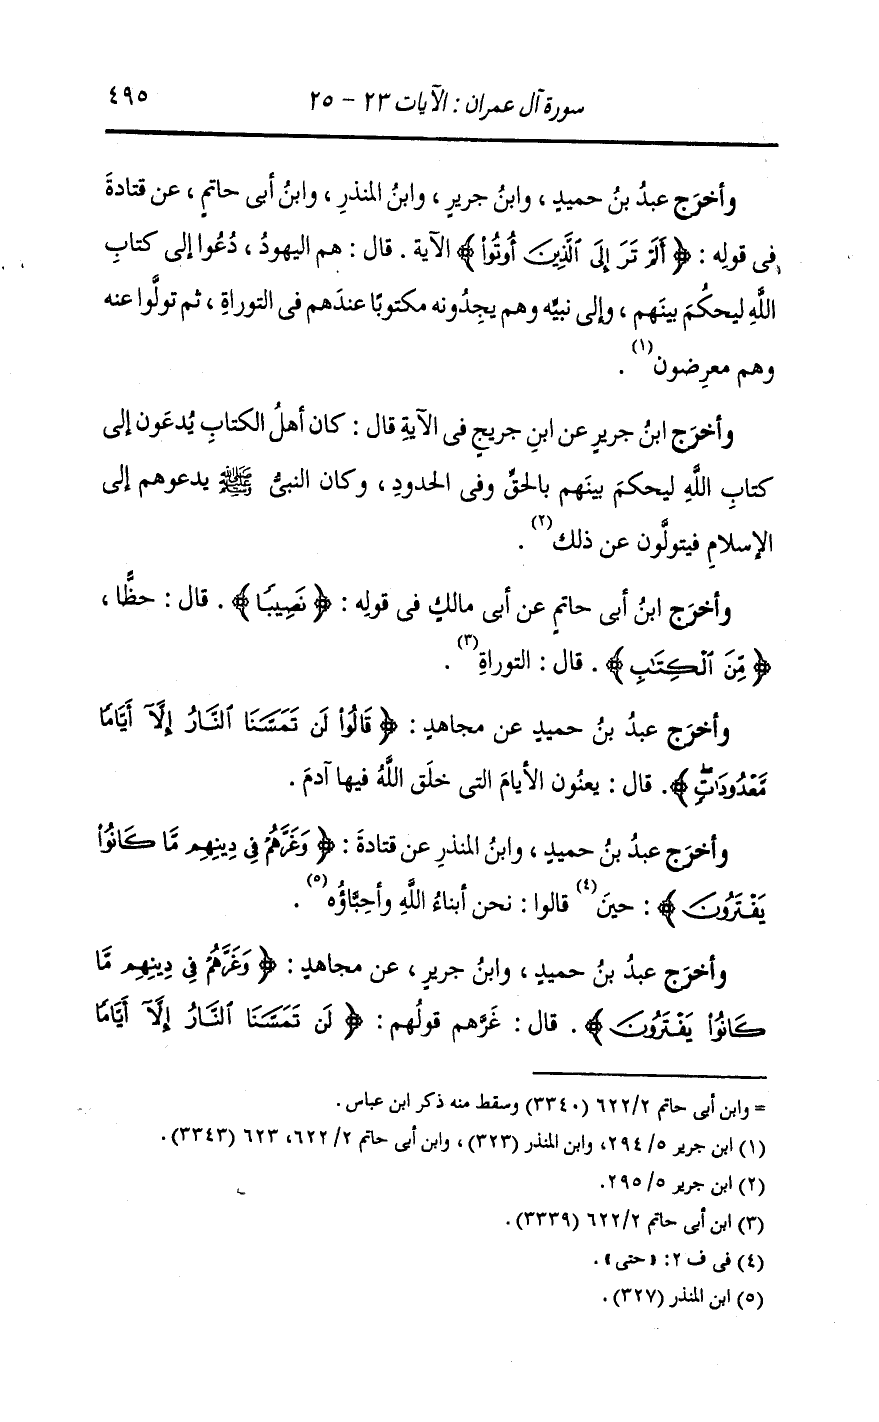 سورة آل عمران : الآيات ٢٣ - ٢٥
٤٩٥
وأخرَج عبدُ بنُ حميدٍ ، وابنُ جريرٍ ، وابنُ المنذرِ ، وابنُ أبى حاتمٍ ، عن قتادةَ
فى قولِه : ﴿ أَلَمْ تَرَ إِلَى ٱلَّذِينَ أُوتُوا۟ ﴾ الآية . قال : هم اليهودُ ، دُعُوا إلى كتابِ
اللَّهِ ليحكُمَ بينَهم ، وإلى نبيِّه وهم يجِدُونه مكتوبًا عندَهم فى التوراةِ ، ثم تولَّوا عنه
وهم معرِضون(١) .
وأخرَج ابنُ جريرٍ عن ابنِ جريجٍ فى الآيةِ قال : كان أهلُ الكتابِ يُدعَون إلى
كتابِ اللَّهِ ليحكمَ بينَهم بالحقِّ وفى الحدودِ ، وكان النبىُّ ﷺ يدعوهم إلى
الإسلامِ فيتولَّون عن ذلك(٢) .
وأخرَج ابنُ أبى حاتمٍ عن أبى مالكٍ فى قولِه : ﴿ نَصِيبًا ﴾ . قال : حظًّا ،
﴿ مِّنَ ٱلْكِتَٰبِ ﴾ . قال : التوراةِ(٣) .
وأخرَج عبدُ بنُ حميدٍ عن مجاهدٍ : ﴿ قَالُوا۟ لَن تَمَسَّنَا ٱلنَّارُ إِلَّآ أَيَّامًا
مَّعْدُودَٰتٍۖ ﴾. قال : يعنُون الأيامَ التى خلَق اللَّهُ فيها آدمَ .
وأخرَج عبدُ بنُ حميدٍ ، وابنُ المنذرِ عن قتادةَ : ﴿ وَغَرَّهُمْ فِى دِينِهِم مَّا كَانُوا۟
يَفْتَرُونَ ﴾ : حينَ(٤) قالوا : نحن أبناءُ اللَّهِ وأحِبَّاؤُه(٥) .
وأخرَج عبدُ بنُ حميدٍ ، وابنُ جريرٍ ، عن مجاهدٍ : ﴿ وَغَرَّهُمْ فِى دِينِهِم مَّا
كَانُوا۟ يَفْتَرُونَ ﴾ . قال : غَرَّهم قولُهم : ﴿ لَن تَمَسَّنَا ٱلنَّارُ إِلَّآ أَيَّامًا
= وابن أبى حاتم ٦٢٢/٢ (٣٣٤٠) وسقط منه ذكر ابن عباس .
(١) ابن جرير ٥/ ٢٩٤، وابن المنذر (٣٢٣) ، وابن أبى حاتم ٢/ ٦٢٢، ٦٢٣ (٣٣٤٣) .
(٢) ابن جرير ٥/ ٢٩٥.
(٣) ابن أبى حاتم ٦٢٢/٢ (٣٣٣٩) .
(٤) فى ف ٢: « حتى » .
(٥) ابن المنذر (٣٢٧) .